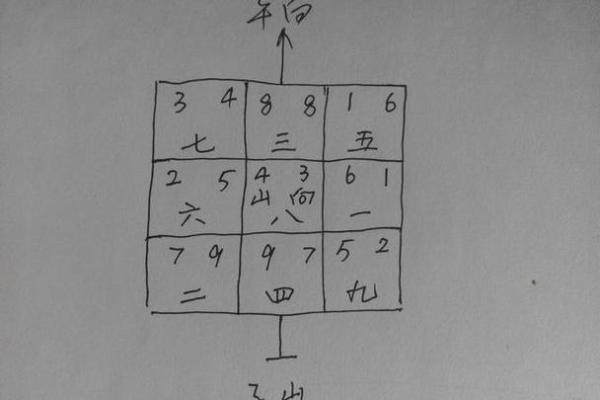 午向
3 4 8 8 1 6
七 三 五
2 5 4 3 6 1
山 向
六 八 一
7 9 9 7 5 2
二 四 九
子山